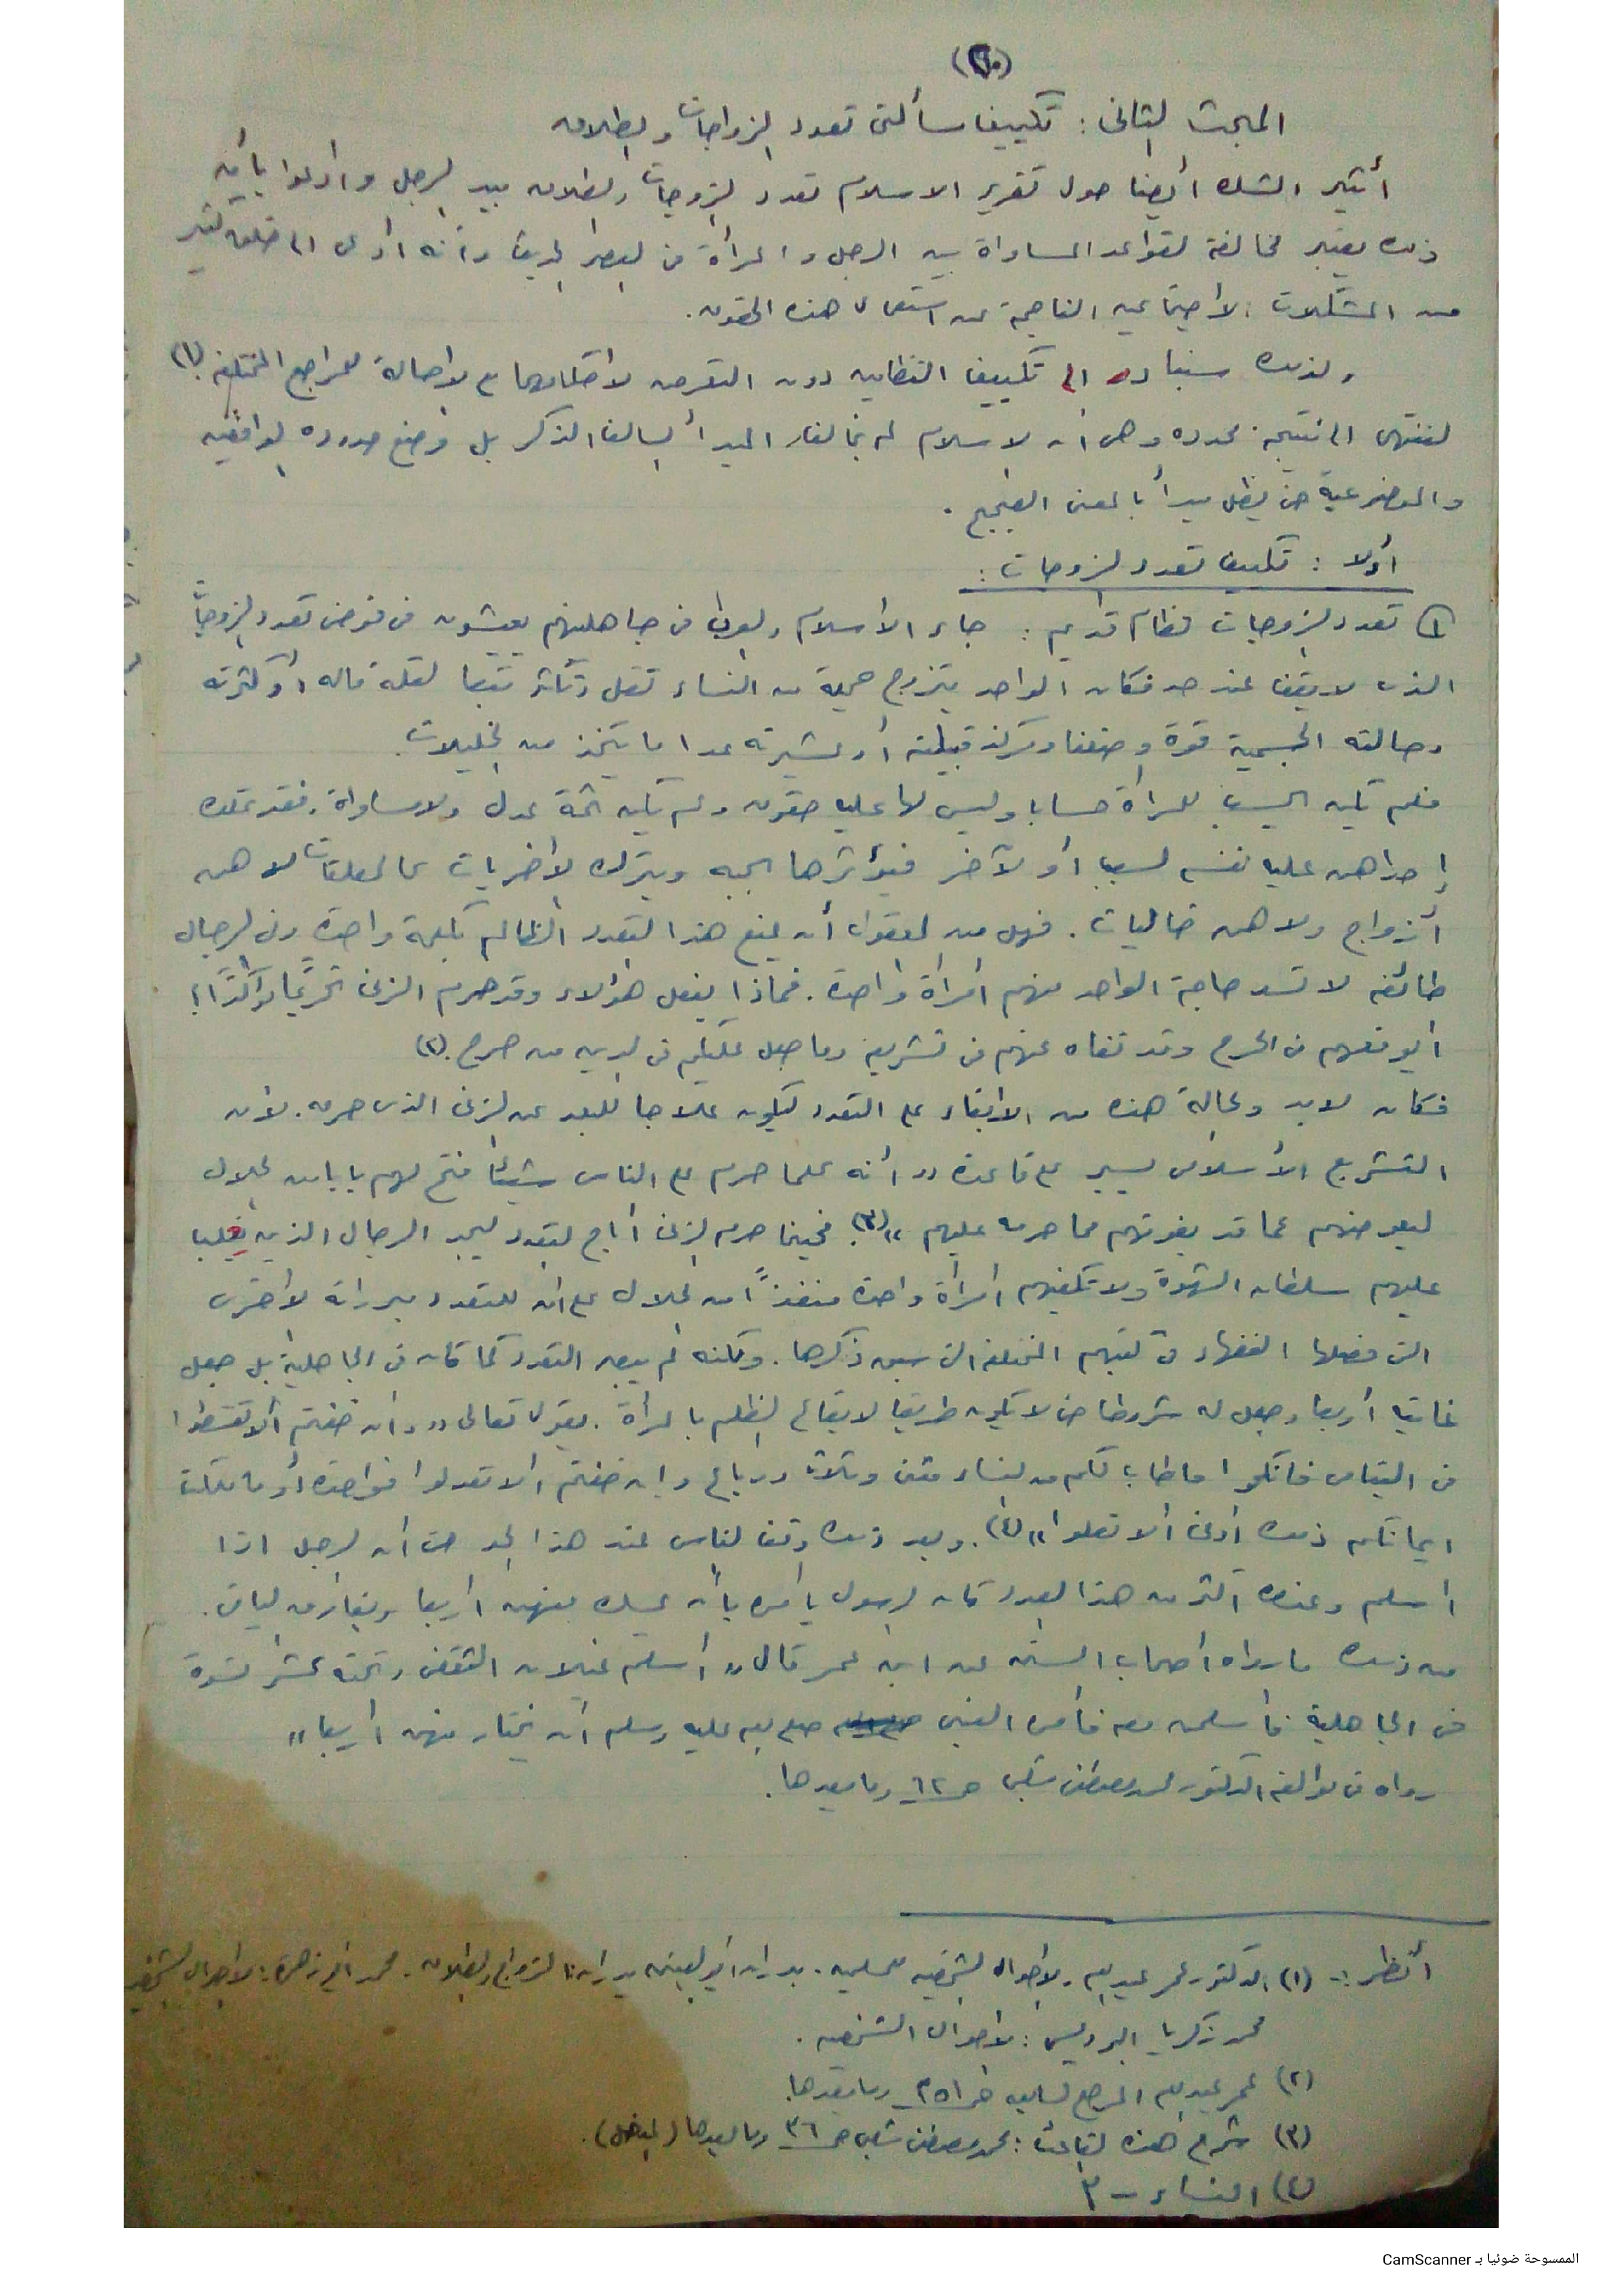 المبحث الثانى : تكييف مسألتى تعدد الزواجات والطلاق
أثير الشك أيضا حول تقرير الاسلام تعدد الزوجات والطلاق بيد الرجل وادعوا بأن
ذلك يعتبر مخالفة لقواعد المساواة بين الرجل والمرأة فى العصر الحديث وأنه أدى الى خلق كثير
من المشكلات الاجتماعيه الناجمة عن استعمال هذه الحقوق .
ولذلك سنبادر الى تكييف النظامين دون التعرض لاحكامهما مع الاحالة للمراجع المختلفه (١)
لننتهى الى نتيجة محدده وهى أن الاسلام لم يخالف المبدأ السالف الذكر بل وضع حدوده الواقعيه
والموضوعية حتى يظل مبدأ بالمعنى الصحيح .
أولا : تكييف تعدد الزوجات :
١ تعدد الزوجات نظام قديم : جاء الاسلام والعرب فى جاهليتهم يعيشون فى فوضى تعدد الزوجات
الذى لا يقف عند حد فكان الواحد يتزوج جملة من النساء تقل وتكثر تبعا لقلة ماله أو كثرته
وحالته الجسمية قوة وضعفا ومركز قبيلته أو عشيرته عدا ما يتخذ من الخليلات .
فلم يكن يحسب للمرأة حسابا وليس لها عليه حقوق ولم يكن ثمة عدل ولا مساواة . فقد تملك
إحداهن عليه نفسه لسبب أو لآخر فيؤثرها بحبه ويترك الأخريات كالمعلقات لا هن
أزواج ولا هن خاليات . فهل من المعقول أن يمنع هذا التعدد الظالم بكلمة واحدة وفى الرجال
طائفه لا تسد حاجة الواحد منهم امرأة واحدة . فماذا يفعل هؤلاء وقد حرم الزنى تحريما مؤكدًا ؟
أيوقعهم فى الحرج وقد نفاه عنهم فى تشريعه وما جعل عليكم فى الدين من حرج . (٢)
فكان لابد والحالة هذه من الابقاء على التعدد ليكون علاجا للبعد عن الزنى الذى حرمه . لأن
التشريع الأسلامى يسير على قاعدة " أنه كلما حرم على الناس شيئا فتح لهم بابا من الحلال
ليعوضهم عما قد يفوتهم مما حرمه عليهم " (٣) . فحينما حرم الزنى أباح التعدد ليجد الرجال الذين يغلب
عليهم سلطان الشهوة ولا تكفيهم امرأة واحدة منفذاً من الحلال على أن للتعدد مبرراته الأخرى
التى فصلها الفقهاء فى كتبهم المختلفة التى سبق ذكرها . ولكنه لم يبح التعدد كما كان فى الجاهلية بل جعل
غايته أربعا وجعل له شروطا حتى لا يكون طريقا لايقاع الظلم بالمرأة . يقول تعالى " وان خفتم ألا تقسطوا
فى اليتامى فانكحوا ما طاب لكم من النساء مثنى وثلاث ورباع وإن خفتم ألا تعدلوا فواحدة أو ما ملكت
ايمانكم ذلك أدنى ألا تعلوا " (٤) . وبعد ذلك وقف الناس عند هذا الحد حتى أن الرجل اذا
اسلم وعنده أكثر من هذا العدد كان الرسول يأمره بأن يمسك منهن اربعا ويفارق الباقى .
من ذلك ما رواه أصحاب السنه عن ابن عمر قال " أسلم غيلان الثقفى وتحته عشر نسوة
فى الجاهلية فأسلمن معه فأمره النبى صلى الله عليه وسلم أن يختار منهن اربعا "
رواه فى مؤالفه الدكتور محمد مصطفى شلبى ص ١٢ وما بعدها .
أنظر :- (١) الدكتور عمر عبد الله ، الأحوال الشخصيه للمسلمين . بدران أبو العينين بدران : الزواج والطلاق . محمد أبو زهرة : الأحوال الشخصيه
محمد زكريا البرديسى : الأحوال الشخصيه .
(٢) عمر عبد الله المرجع السابق ص ٢٥١ وما بعدها .
(٣) شرح هذه القاعدة : محمد مصطفى شلبى ص ٣٦ وما بعدها
(٤) النساء – ٣
الممسوحة ضوئيا بـ CamScanner